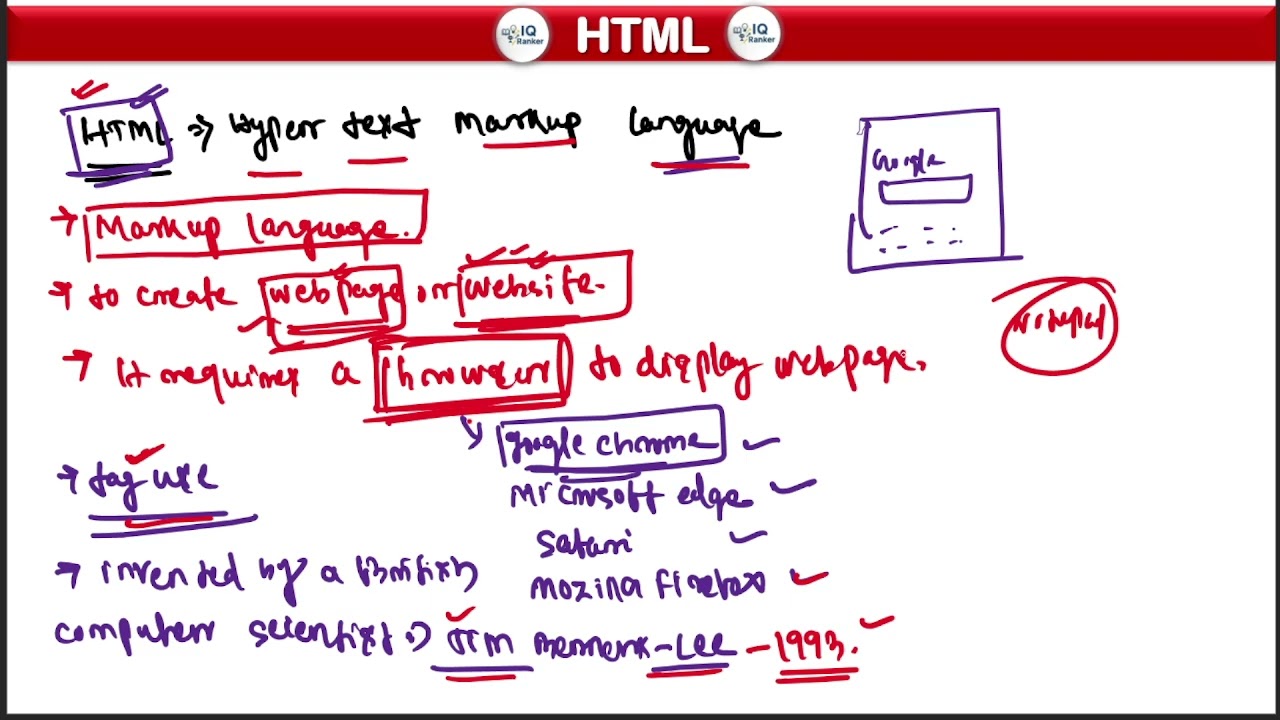 IQ Ranker HTML IQ Ranker
HTML ⇒ Hyper text Markup language
Google
→ Markup language.
→ to create webpage or website.
Notepad
→ It requires a browser to display webpage.
google chrome
→ tag use
Microsoft edge
Safari
→ invented by a British
Mozilla Firefox
computer scientist ⇒ Tim Berners-Lee - 1993.